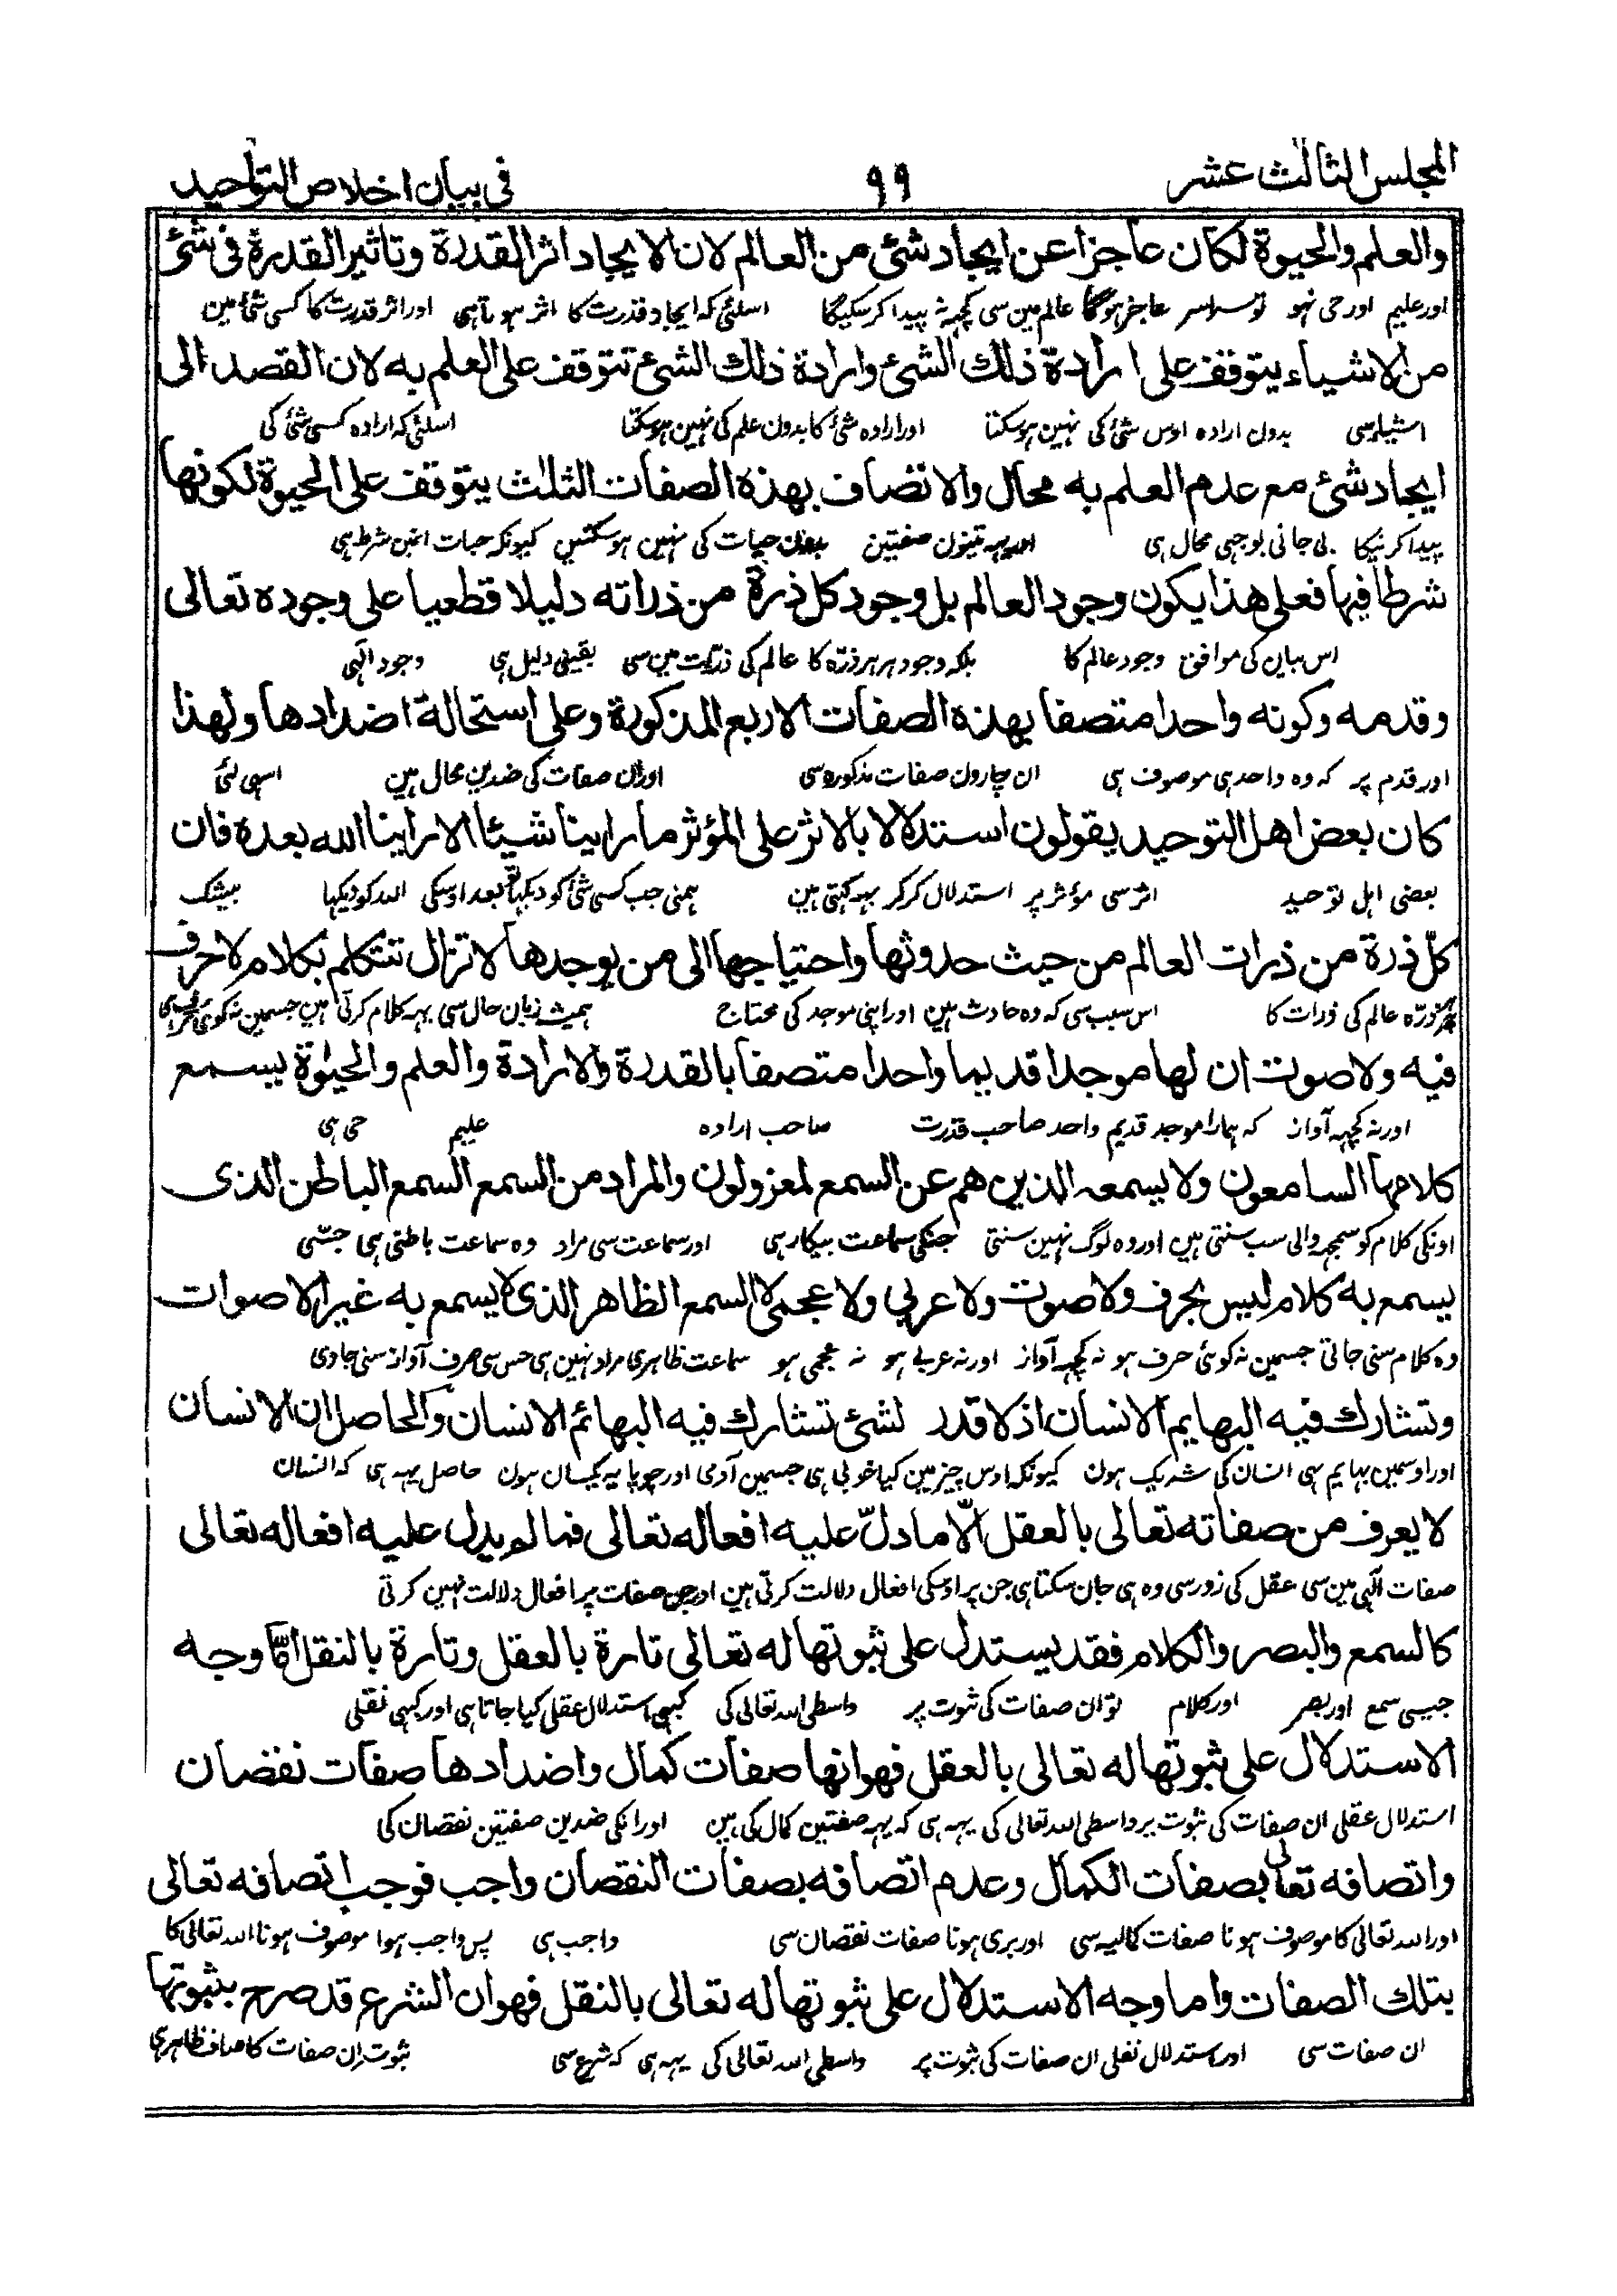 المجلس الثالث عشر
٩٩
فى بيان اخلاص التواحيد
والعلم والحيوة لكان عاجزا عن ايجاد شئ من العالم لان الايجاد اثر القدرة وتاثير القدرة فى شئ
اور علیم اور حی نہو تو سراسر عاجز ہوگا عالم مین سی کچہہ نہ پیدا کر سکیگا اسلئی کہ ایجاد قدرت کا اثر ہوتا ہی اور اثر قدرت کا کسی شئ مین
من الاشياء يتوقف على ارادة ذلك الشئ وارادة ذلك الشئ تتوقف على العلم به لان القصد الى
اشیا سی بدون ارادہ اوس شئ کی نہین ہو سکتا اور ارادہ شئ کا بدون علم کی نہین ہو سکتا اسلئی کہ ارادہ کسی شئ کی
ايجاد شئ مع عدم العلم به محال والاتصاف بهذه الصفات الثلث يتوقف على الحيوة لكونها
پیدا کرنیکا بی جانی بوجہی محال ہی اور یہہ تینون صفتین بدون حیات کی نہین ہو سکتین کیونکہ حیات انمین شرط ہی
شرطا فيها فعلى هذا يكون وجود العالم بل وجود كل ذرة من ذراته دليلا قطعيا على وجوده تعالى
اس بیان کی موافق وجود عالم کا بلکہ وجود ہر ہر ذرّہ کا عالم کی ذرّات مین سی یقینی دلیل ہی وجود الٰہی
وقدمه وكونه واحدا متصفا بهذه الصفات الاربع المذكورة وعلى استحالة اضدادها ولهذا
اور قدم پر کہ وہ واحد ہی موصوف ہی ان چارون صفات مذکورہ سی اور ان صفات کی ضدین محال ہین اسی لئی
كان بعض اهل التوحيد يقولون استدلالا بالاثر على المؤثر ما راينا شيئا الا راينا الله بعده فان
بعضی اہل توحید اثر سی مؤثر پر استدلال کر کر یہہ کہتی ہین ہمنی جب کسی شئ کو دیکہا تو بعد اوسکی اللہ کو دیکہا بیشک
كلّ ذرة من ذرات العالم من حيث حدوثها واحتياجها الى من يوجدها لا تزال تتكلم بكلام لا حرف
ہر ذرّہ عالم کی ذرات کا اس سبب سی کہ وہ حادث ہین اور اپنی موجد کی محتاج ہمیشہ زبان حال سی یہہ کلام کرتی ہین جسمین نہ کوئی حرف ہی
فيه ولا صوت ان لها موجدا قديما واحدا متصفا بالقدرة والارادة والعلم والحيٰوة يسمع
اور نہ کچہہ آواز کہ ہمارا موجد قدیم واحد صاحب قدرت صاحب ارادہ علیم حی ہی
كلامها السامعون ولا يسمعه الذين هم عن السمع لمعزولون والمراد من السمع السمع الباطن الذى
اونکی کلام کو سمجہہ والی سب سنتی ہین اور وہ لوگ نہین سنتی جنکی سماعت بیکار ہی اور سماعت سی مراد وہ سماعت باطنی ہی جسّی
يسمع به كلام ليس بحرف ولا صوت ولا عربي ولا عجمى لا السمع الظاهر الذى لا يسمع به غير الاصوات
وہ کلام سنی جاتی جسمین نہ کوئی حرف ہو نہ کچہہ آواز اور نہ عربے ہو نہ عجمی ہو سماعت ظاہری مراد نہین ہی جس سی صرف آواز سنی جاوی
وتشارك فيه البهايم الانسان اذ لا قدر لشئ تشارك فيه البهائم الانسان والحاصل ان الانسان
اور اوسمین بہایم ہی انسان کی شریک ہون کیونکہ اوس چیز مین کیا خوبی ہی جسمین آدمی اور چوپایہ یکسان ہون حاصل یہہ ہی کہ انسان
لا يعرف من صفاته تعالى بالعقل الّا ما دلّ عليه افعاله تعالى فما لم يدل عليه افعاله تعالى
صفات الٰہی مین سی عقل کی زور سی وہ ہی جان سکتا ہی جن پر اوسکی افعال دلالت کرتی ہین اور جن صفات پر افعال دلالت نہین کرتی
كالسمع والبصر والكلام فقد يستدل على ثبوتها له تعالى تارة بالعقل وتارة بالنقل امّا وجه
جیسی سمع اور بصر اور کلام تو ان صفات کی ثبوت پر واسطی اللہ تعالی کی کبہی استدلال عقلی کیا جاتا ہی اور کبہی نقلی
الاستدلال على ثبوتها له تعالى بالعقل فهو انها صفات كمال واضدادها صفات نقصان
استدلال عقلی ان صفات کی ثبوت پر واسطی اللہ تعالی کی یہہ ہی کہ یہہ صفتین کمال کی ہین اور انکی ضدین صفتین نقصان کی
واتصافه تعالى بصفات الكمال وعدم اتصافه بصفات النقصان واجب فوجب اتصافه تعالى
اور اللہ تعالی کا موصوف ہونا صفات کمالیہ سی اور بری ہونا صفات نقصان سی واجب ہی پس واجب ہوا موصوف ہونا اللہ تعالی کا
بتلك الصفات واما وجه الاستدلال على ثبوتها له تعالى بالنقل فهو ان الشرع قد صرح بثبوتها
ان صفات سی اور استدلال نقلی ان صفات کی ثبوت پر واسطی اللہ تعالی کی یہہ ہی کہ شرع سی ثبوت ان صفات کا صاف ظاہر ہی